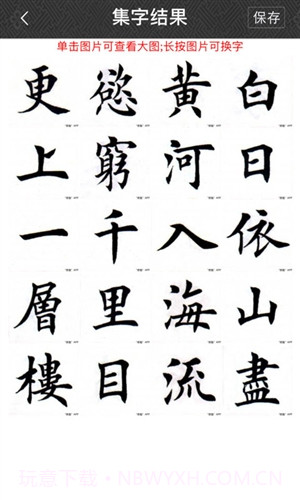 集字结果
保存
单击图片可查看大图;长按图片可换字
白日依山盡
黄河入海流
慾窮千里目
更上一層樓
玩意下载·NBWYXH.COM.CN